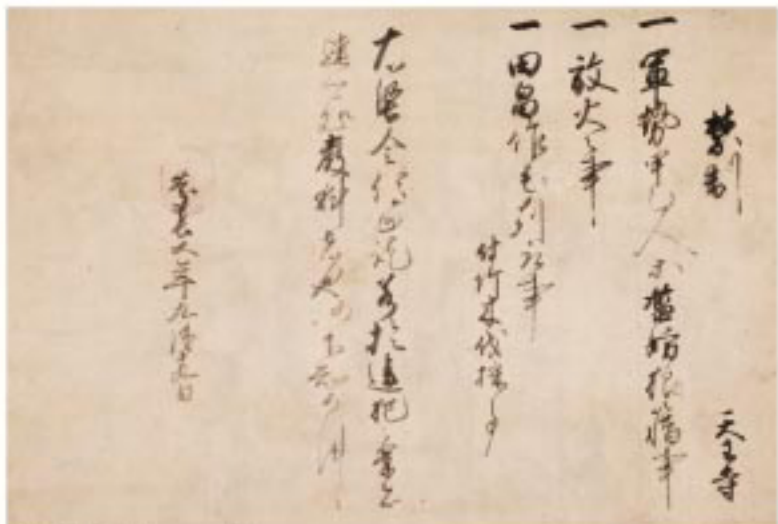 禁制　天王寺
一軍勢甲乙人等濫妨狼藉事
一放火事
一田畠作毛刈取事
付竹木伐採事
右堅令停止訖若於違犯之輩者
速可処厳科者也仍下知如件
慶長五年九月　日